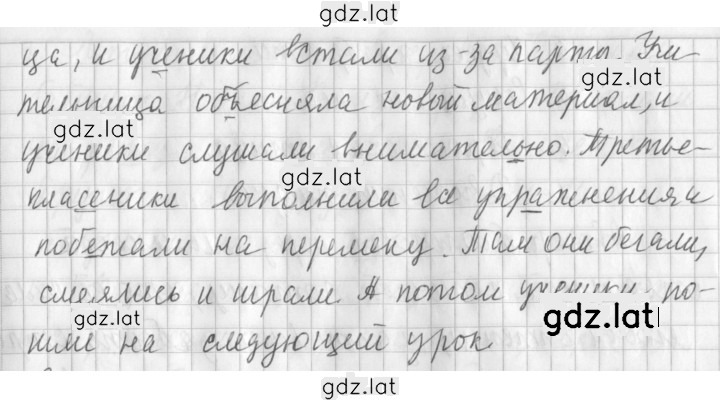 gdz.lat
ца, и ученики встали из-за парты. Учи-
gdz.lat
тельница объесняла новый материал, и
gdz.lat
ученики слушали внимательно. Третье-
gdz.lat
класеники выполнили все упражнения и
побежали на перемену. Там они бегали,
смеялись и играли. А потом ученики по-
gdz.lat
gdz.lat
шли на следующий урок
gdz.lat